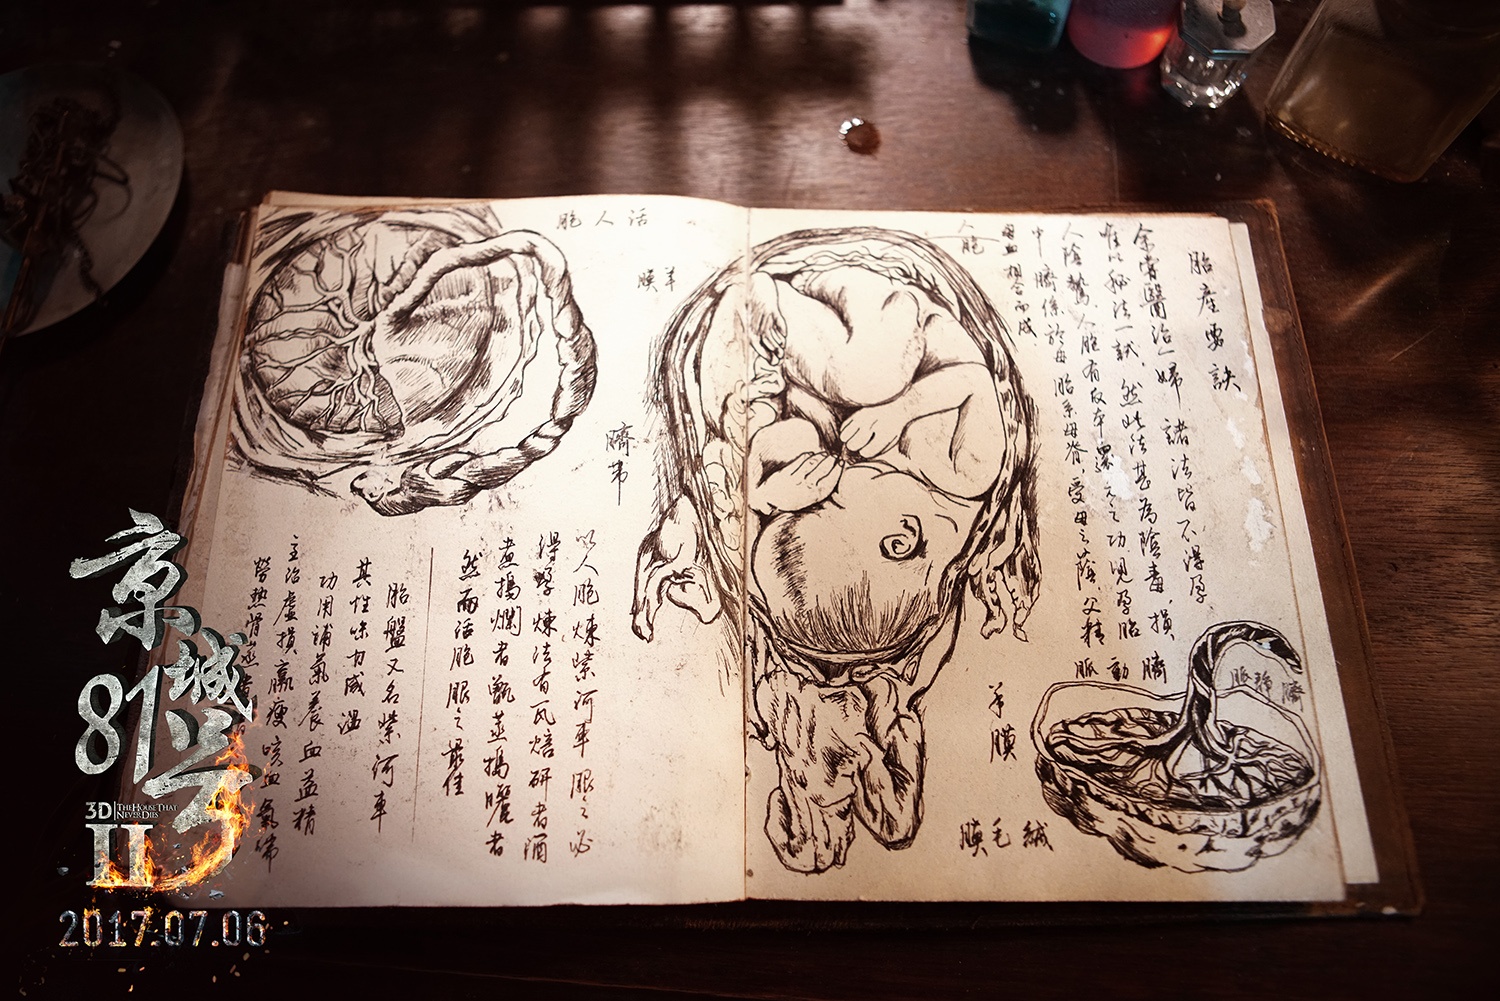 胎產要訣
余嘗醫治一婦 諸法皆不得孕
唯以秘法一試，然此法甚為陰毒，損
人陰騭，人胞有返本還元之功 兒孕胎 臍
中 臍係於母 胎系母脊，受母之蔭 父精 動
母血相合而成
脈
人胞
臍
靜
脈
羊膜
絨毛膜
活人胞
羊膜
臍帶
以人胞煉紫河車服之必
得孕 煉法有瓦焙研者酒
煮搗爛者甑蒸搗曬者
然而活胞服之最佳
胎盤又名紫河車
其性味甘咸溫
功用補氣養血益精
主治虛損羸瘦咳血氣
勞熱骨蒸
京城81号
3D THE HOUSE THAT NEVER DIES
II
2017.07.06